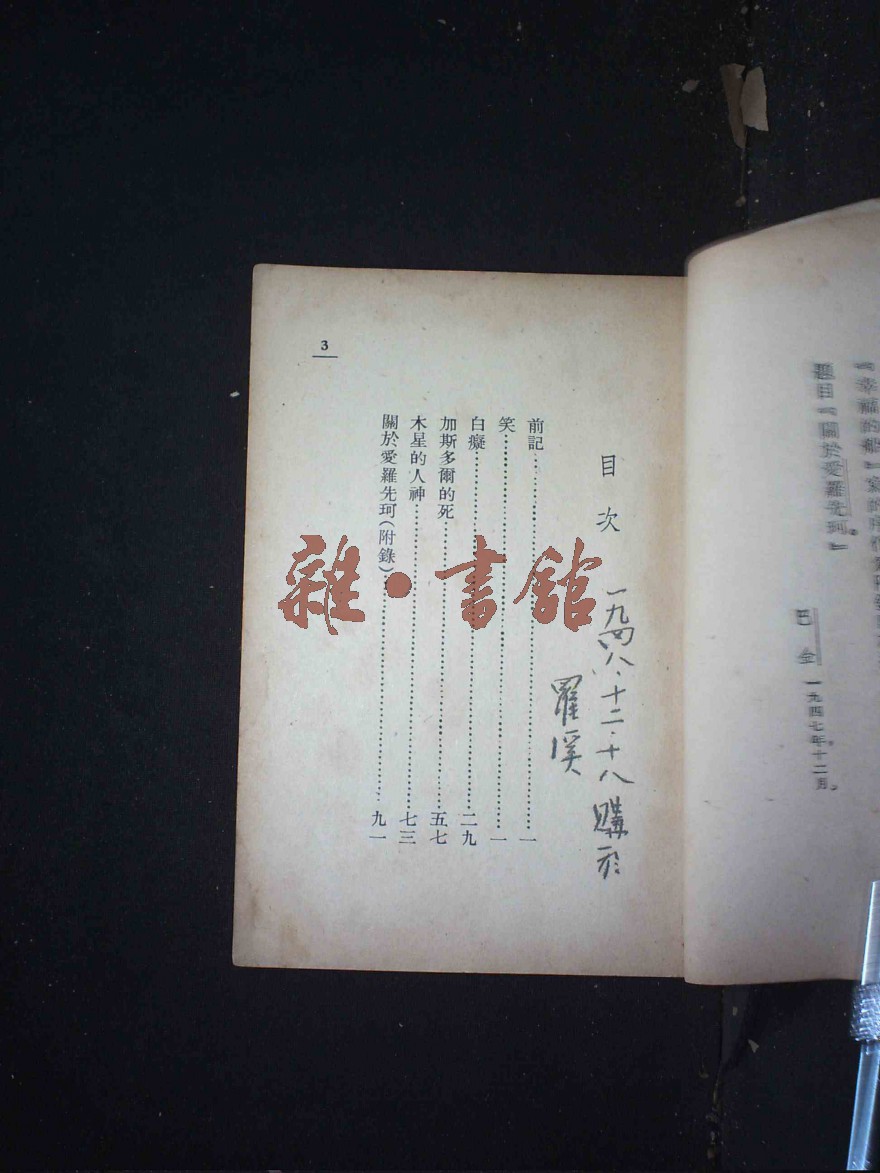 題目『關於愛羅先珂。』
巴金 一九四七年十二月。
3
目次
前記 一
笑 一
白癡 二九
加斯多爾的死 五七
木星的人神 七三
關於愛羅先珂(附錄) 九一
一九四八·十二·十八購於
羅溪
雜·書館